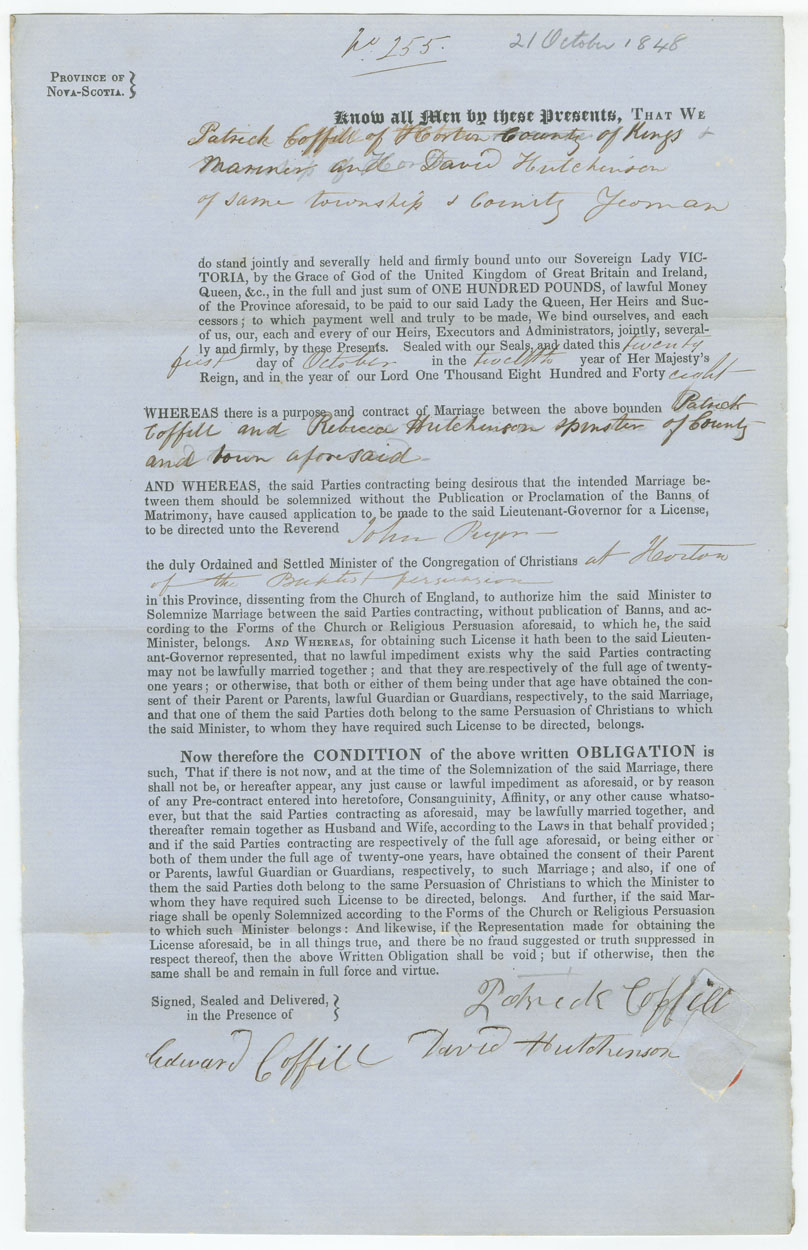 No 255.
21 October 1848
PROVINCE OF
NOVA-SCOTIA.
Know all Men by these Presents, THAT WE
Patrick Coffill of Horton County of Kings &
Mariner and David Hutchinson
of same township & County Yeoman
do stand jointly and severally held and firmly bound unto our Sovereign Lady VIC-
TORIA, by the Grace of God of the United Kingdom of Great Britain and Ireland,
Queen, &c., in the full and just sum of ONE HUNDRED POUNDS, of lawful Money
of the Province aforesaid, to be paid to our said Lady the Queen, Her Heirs and Suc-
cessors; to which payment well and truly to be made, We bind ourselves, and each
of us, our, each and every of our Heirs, Executors and Administrators, jointly, several-
ly and firmly, by these Presents. Sealed with our Seals, and dated this twenty
first day of October in the twelfth year of Her Majesty's
Reign, and in the year of our Lord One Thousand Eight Hundred and Forty eight
WHEREAS there is a purpose and contract of Marriage between the above bounden Patrick
Coffill and Rebecca Hutchinson spinster of County
and town aforesaid
AND WHEREAS, the said Parties contracting being desirous that the intended Marriage be-
tween them should be solemnized without the Publication or Proclamation of the Banns of
Matrimony, have caused application to be made to the said Lieutenant-Governor for a License,
to be directed unto the Reverend John Pryor
the duly Ordained and Settled Minister of the Congregation of Christians at Horton
of the Baptist persuasion
in this Province, dissenting from the Church of England, to authorize him the said Minister to
Solemnize Marriage between the said Parties contracting, without publication of Banns, and ac-
cording to the Forms of the Church or Religious Persuasion aforesaid, to which he, the said
Minister, belongs. AND WHEREAS, for obtaining such License it hath been to the said Lieuten-
ant-Governor represented, that no lawful impediment exists why the said Parties contracting
may not be lawfully married together; and that they are respectively of the full age of twenty-
one years; or otherwise, that both or either of them being under that age have obtained the con-
sent of their Parent or Parents, lawful Guardian or Guardians, respectively, to the said Marriage,
and that one of them the said Parties doth belong to the same Persuasion of Christians to which
the said Minister, to whom they have required such License to be directed, belongs.
Now therefore the CONDITION of the above written OBLIGATION is
such, That if there is not now, and at the time of the Solemnization of the said Marriage, there
shall not be, or hereafter appear, any just cause or lawful impediment as aforesaid, or by reason
of any Pre-contract entered into heretofore, Consanguinity, Affinity, or any other cause whatso-
ever, but that the said Parties contracting as aforesaid, may be lawfully married together, and
thereafter remain together as Husband and Wife, according to the Laws in that behalf provided;
and if the said Parties contracting are respectively of the full age aforesaid, or being either or
both of them under the full age of twenty-one years, have obtained the consent of their Parent
or Parents, lawful Guardian or Guardians, respectively, to such Marriage; and also, if one of
them the said Parties doth belong to the same Persuasion of Christians to which the Minister to
whom they have required such License to be directed, belongs. And further, if the said Mar-
riage shall be openly Solemnized according to the Forms of the Church or Religious Persuasion
to which such Minister belongs: And likewise, if the Representation made for obtaining the
License aforesaid, be in all things true, and there be no fraud suggested or truth suppressed in
respect thereof, then the above Written Obligation shall be void; but if otherwise, then the
same shall be and remain in full force and virtue.
Signed, Sealed and Delivered,
in the Presence of
Patrick Coffill
Edward Coffill David Hutchinson